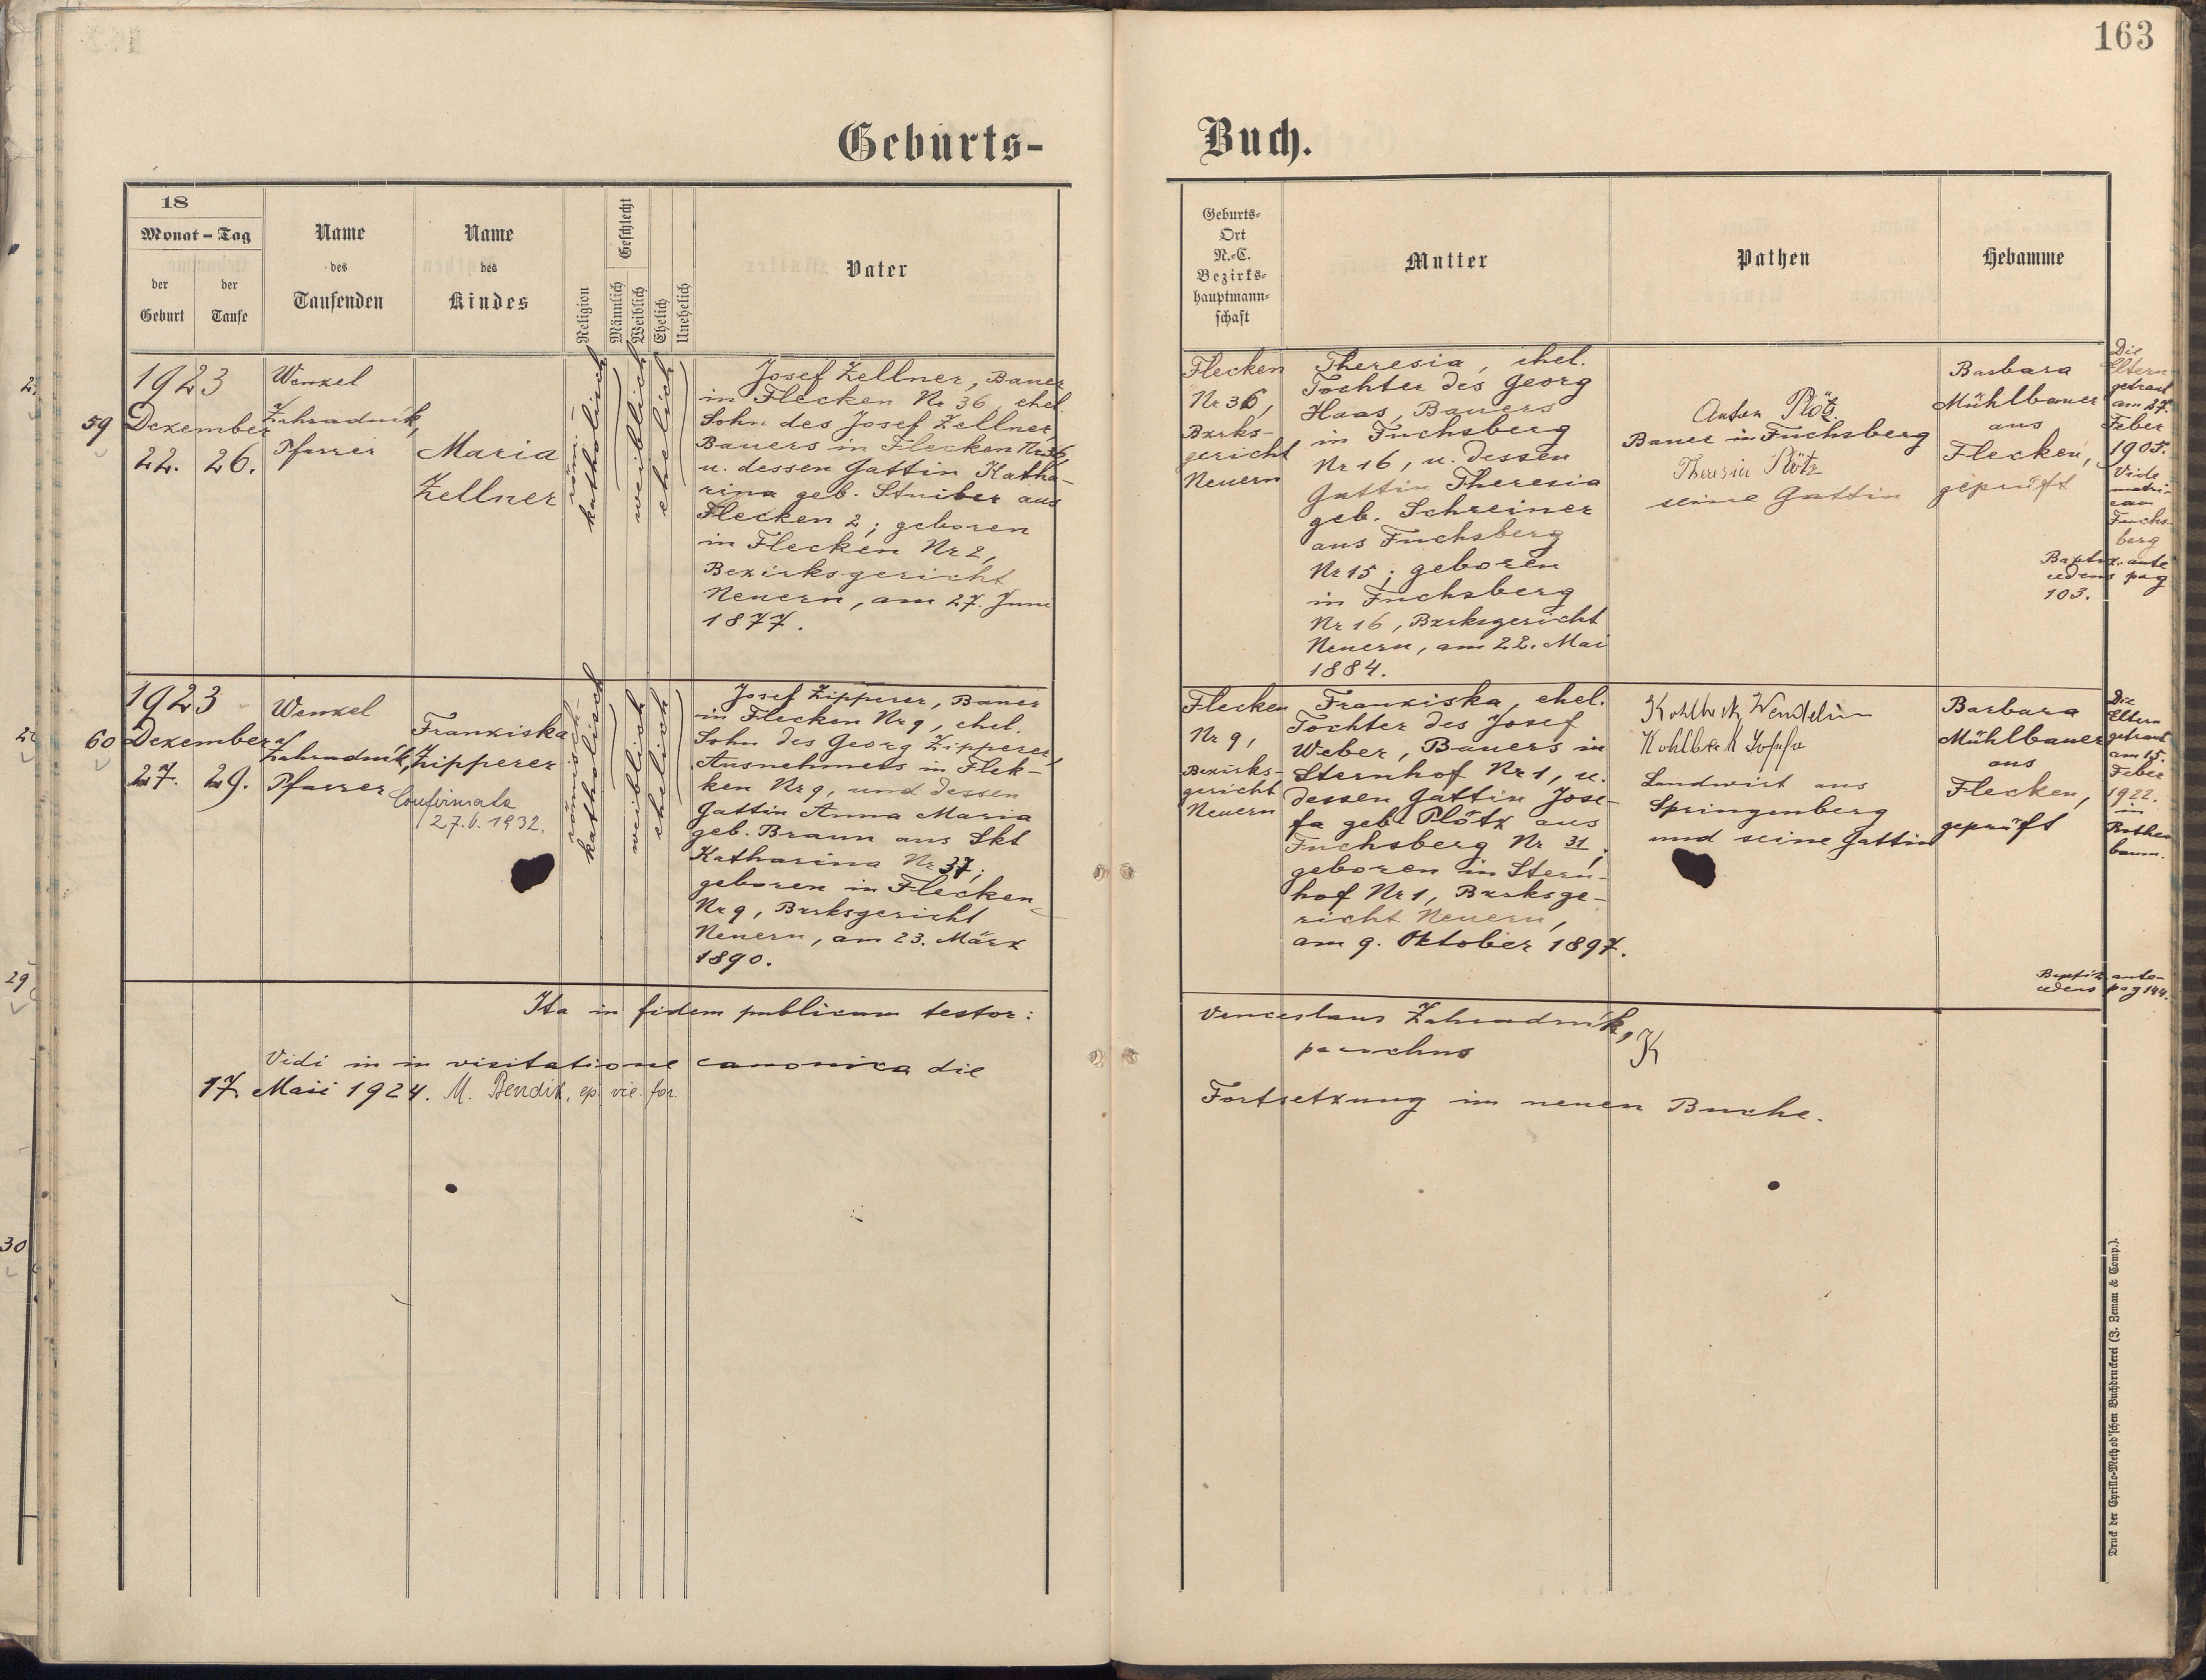 163
Geburts-
Buch.
18
Monat – Tag
der
Geburt
der
Taufe
Name
des
Taufenden
Name
des
Kindes
Religion
Geschlecht
Männlich
Weiblich
Ehelich
Unehelich
Vater
Geburts-
Ort
N.-C.
Bezirks-
hauptmann-
schaft
Mutter
Pathen
Hebamme
59
1923
Dezember
22. 26.
Wenzel
Zahradník,
Pfarrer
Maria
Zellner
röm.-
katholisch
weiblich
ehelich
Josef Zellner, Bauer
in Flecken Nr 36, ehel.
Sohn des Josef Zellner,
Bauers in Flecken Nr 36,
u. dessen Gattin Katha-
rina geb. Stuiber aus
Flecken 2; geboren
in Flecken Nr 2,
Bezirksgericht
Neuern, am 27. Juni
1877.
Flecken
Nr 36,
Bzrks-
gericht
Neuern
Theresia, ehel.
Tochter des Georg
Haas, Bauers
in Fuchsberg
Nr 16, u. dessen
Gattin Theresia
geb. Schreiner
aus Fuchsberg
Nr 15; geboren
in Fuchsberg
Nr 16, Bzrksgericht
Neuern, am 22. Mai
1884.
Anton Plötz
Bauer in Fuchsberg
Theresia Plötz
seine Gattin
Barbara
Mühlbauer
aus
Flecken,
geprüft
Die
Eltern
getraut
am 27.
Feber
1905.
Vide
matri-
cam
Fuchs-
berg
Baptiz. ante
cedens pag
103.
60
1923
Dezember
27. 29.
Wenzel
Zahradník,
Pfarrer
Franziska
Zipperer
Confirmata
27.6.1932.
römisch-
katholisch
weiblich
ehelich
Josef Zipperer, Bauer
in Flecken Nr 9, ehel.
Sohn des Georg Zipperer,
Ausnehmers in Flek-
ken Nr 9, und dessen
Gattin Anna Maria
geb. Braun aus Skt
Katharina Nr 37;
geboren in Flecken
Nr 9, Bzrksgericht
Neuern, am 23. März
1890.
Flecken
Nr 9,
Bezirks-
gericht
Neuern
Franziska, ehel.
Tochter des Josef
Weber, Bauers in
Sternhof Nr 1, u.
dessen Gattin Jose-
fa geb. Plötz aus
Fuchsberg Nr 31;
geboren in Stern-
hof Nr 1, Bzrksge-
richt Neuern,
am 9. Oktober 1897.
Kohlbeck Wendelin
Kohlbeck Josefa
Landwirt aus
Springenberg
und seine Gattin
Barbara
Mühlbauer
aus
Flecken,
geprüft
Die
Eltern
getraut
am 15.
Feber
1922.
in
Rothen
baum.
Baptiz. ante-
cedens pag 144.
Ita in fidem publicam testor:
Venceslaus Zahradník,
parochus
K
Vidi in in visitatione canonica die
17. Maii 1924. M. Bendix, ep. vic. for.
Fortsetzung im neuen Buche.
29
30
Druck der Cyrillo-Method'schen Buchdruckerei (J. Zeman & Comp.).